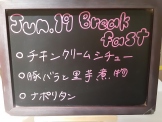 Jun.19 Break
fast
○チキンクリームシチュー
○豚バラと里芋煮物
○ナポリタン